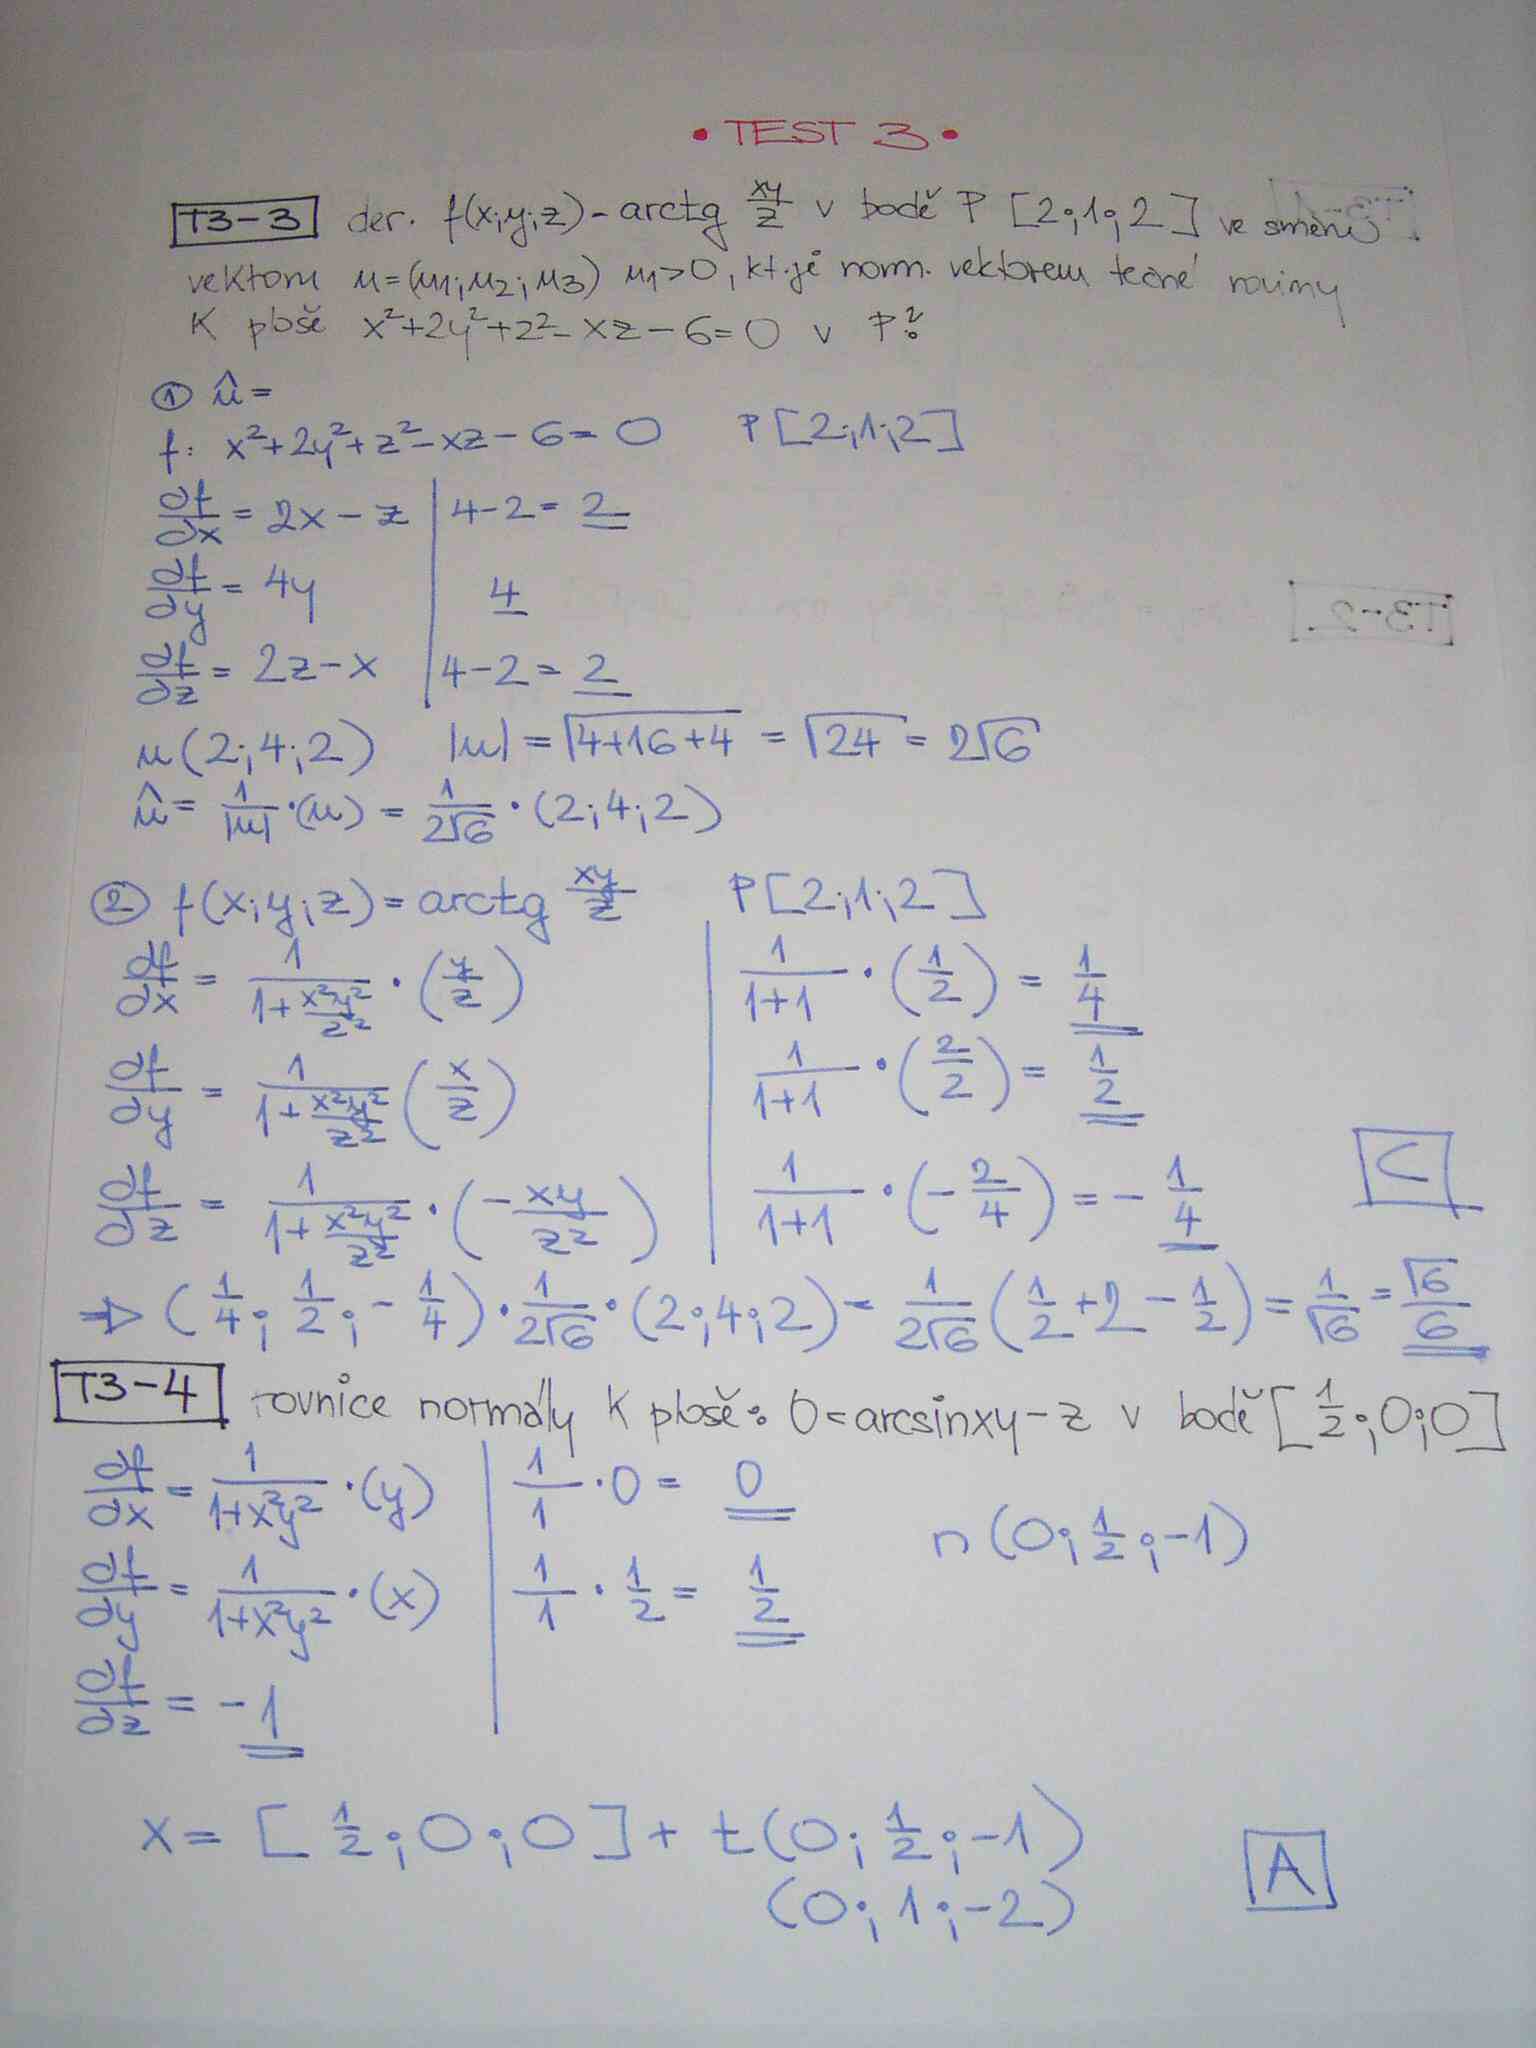 • TEST 3 •
T3-3 der. f(x;y;z) - arctg xy/z v bodě P [2;1;2] ve směru
vektoru u=(u1;u2;u3) u1>0, kt. je norm. vektorem tečné roviny
K ploše x²+2y²+z²-xz-6=0 v P?
① û=
f: x²+2y²+z²-xz-6=0 P[2;1;2]
∂f/∂x = 2x-z | 4-2=2
∂f/∂y = 4y | 4
∂f/∂z = 2z-x | 4-2=2
u(2;4;2) |u| = √4+16+4 = √24 = 2√6
û = 1/|u| ·(u) = 1/2√6 · (2;4;2)
② f(x;y;z) = arctg xy/z P[2;1;2]
∂f/∂x = 1/(1+x²y²/z²) · (y/z) | 1/(1+1) · (1/2) = 1/4
∂f/∂y = 1/(1+x²y²/z²) (x/z) | 1/(1+1) · (2/2) = 1/2
C
∂f/∂z = 1/(1+x²y²/z²) · (-xy/z²) | 1/(1+1) · (-2/4) = -1/4
⇒ (1/4; 1/2; -1/4) · 1/2√6 · (2;4;2) = 1/2√6 (1/2+2-1/2) = 1/√6 = √6/6
T3-4 rovnice normály K ploše: 0=arcsinxy-z v bodě [1/2;0;0]
∂f/∂x = 1/(1+x²y²) · (y) | 1/1 · 0 = 0
n(0; 1/2; -1)
∂f/∂y = 1/(1+x²y²) · (x) | 1/1 · 1/2 = 1/2
∂f/∂z = -1
x = [1/2;0;0] + t(0; 1/2; -1)
(0;1;-2)
A